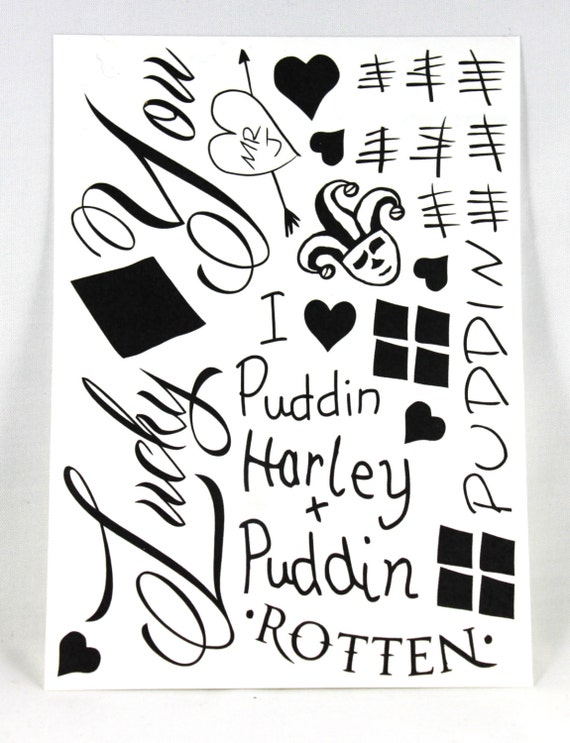 Lucky
You
MR
J
I
Puddin
Harley
+
Puddin
•ROTTEN•
PUDDIN